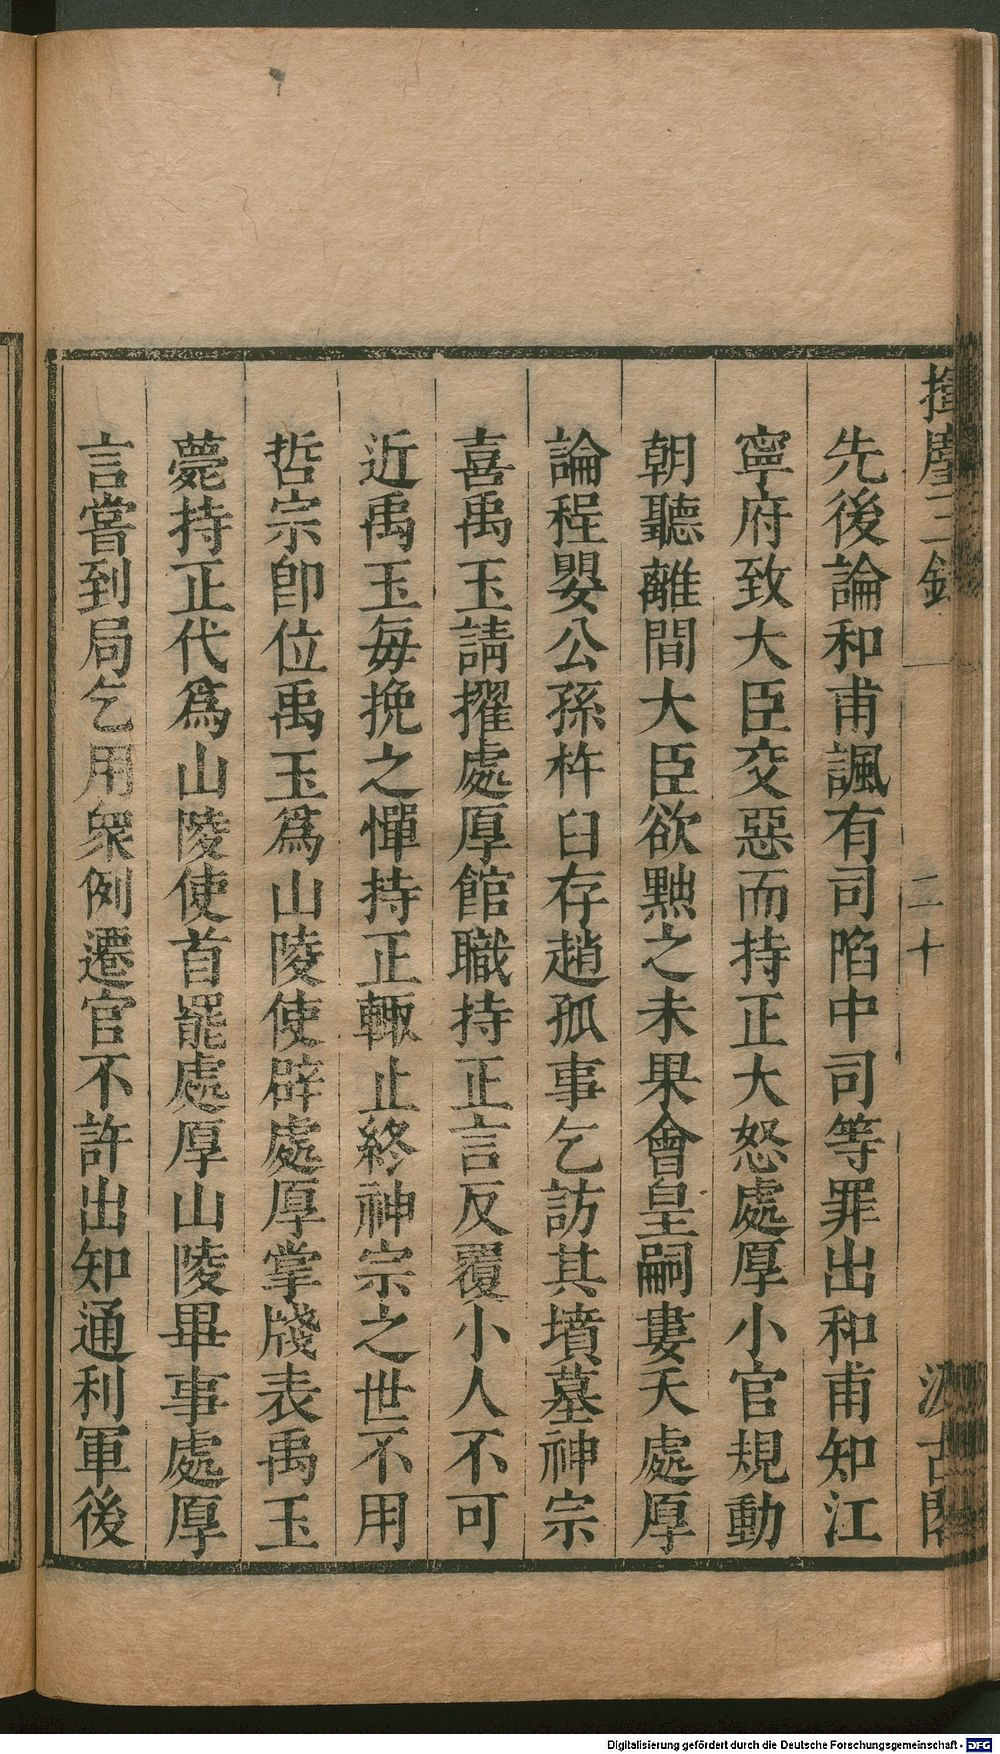 揮麈三錄
二十
汲古閣
先後論和甫諷有司陷中司等罪出和甫知江
寧府致大臣交惡而持正大怒處厚小官規動
朝聽離間大臣欲黜之未果會皇嗣婁夭處厚
論程嬰公孫杵臼存趙孤事乞訪其墳墓神宗
喜禹玉請擢處厚館職持正言反覆小人不可
近禹玉每挽之憚持正輙止終神宗之世不用
哲宗卽位禹玉爲山陵使辟處厚掌牋表禹玉
薨持正代爲山陵使首罷處厚山陵畢事處厚
言嘗到局乞用衆例遷官不許出知通利軍後
Digitalisierung gefördert durch die Deutsche Forschungsgemeinschaft - DFG